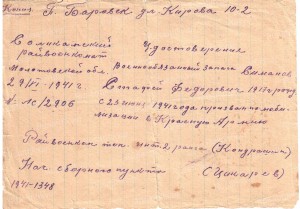 Копия
г. Боровск ул. Кирова 10-2
Соликамский
райвоенкомат
Молотовской обл.
29/VI-1941г.
№ 1с/2906
Удостоверение
Военнообязанного запаса
Федорович 1917 года
с 23 июня 1941 года призван по моби-
лизации в Красную Армию
Райвоенком тех. инт. 2 ранга (Кондрашин)
Нач. сборного пункта
1941-1348